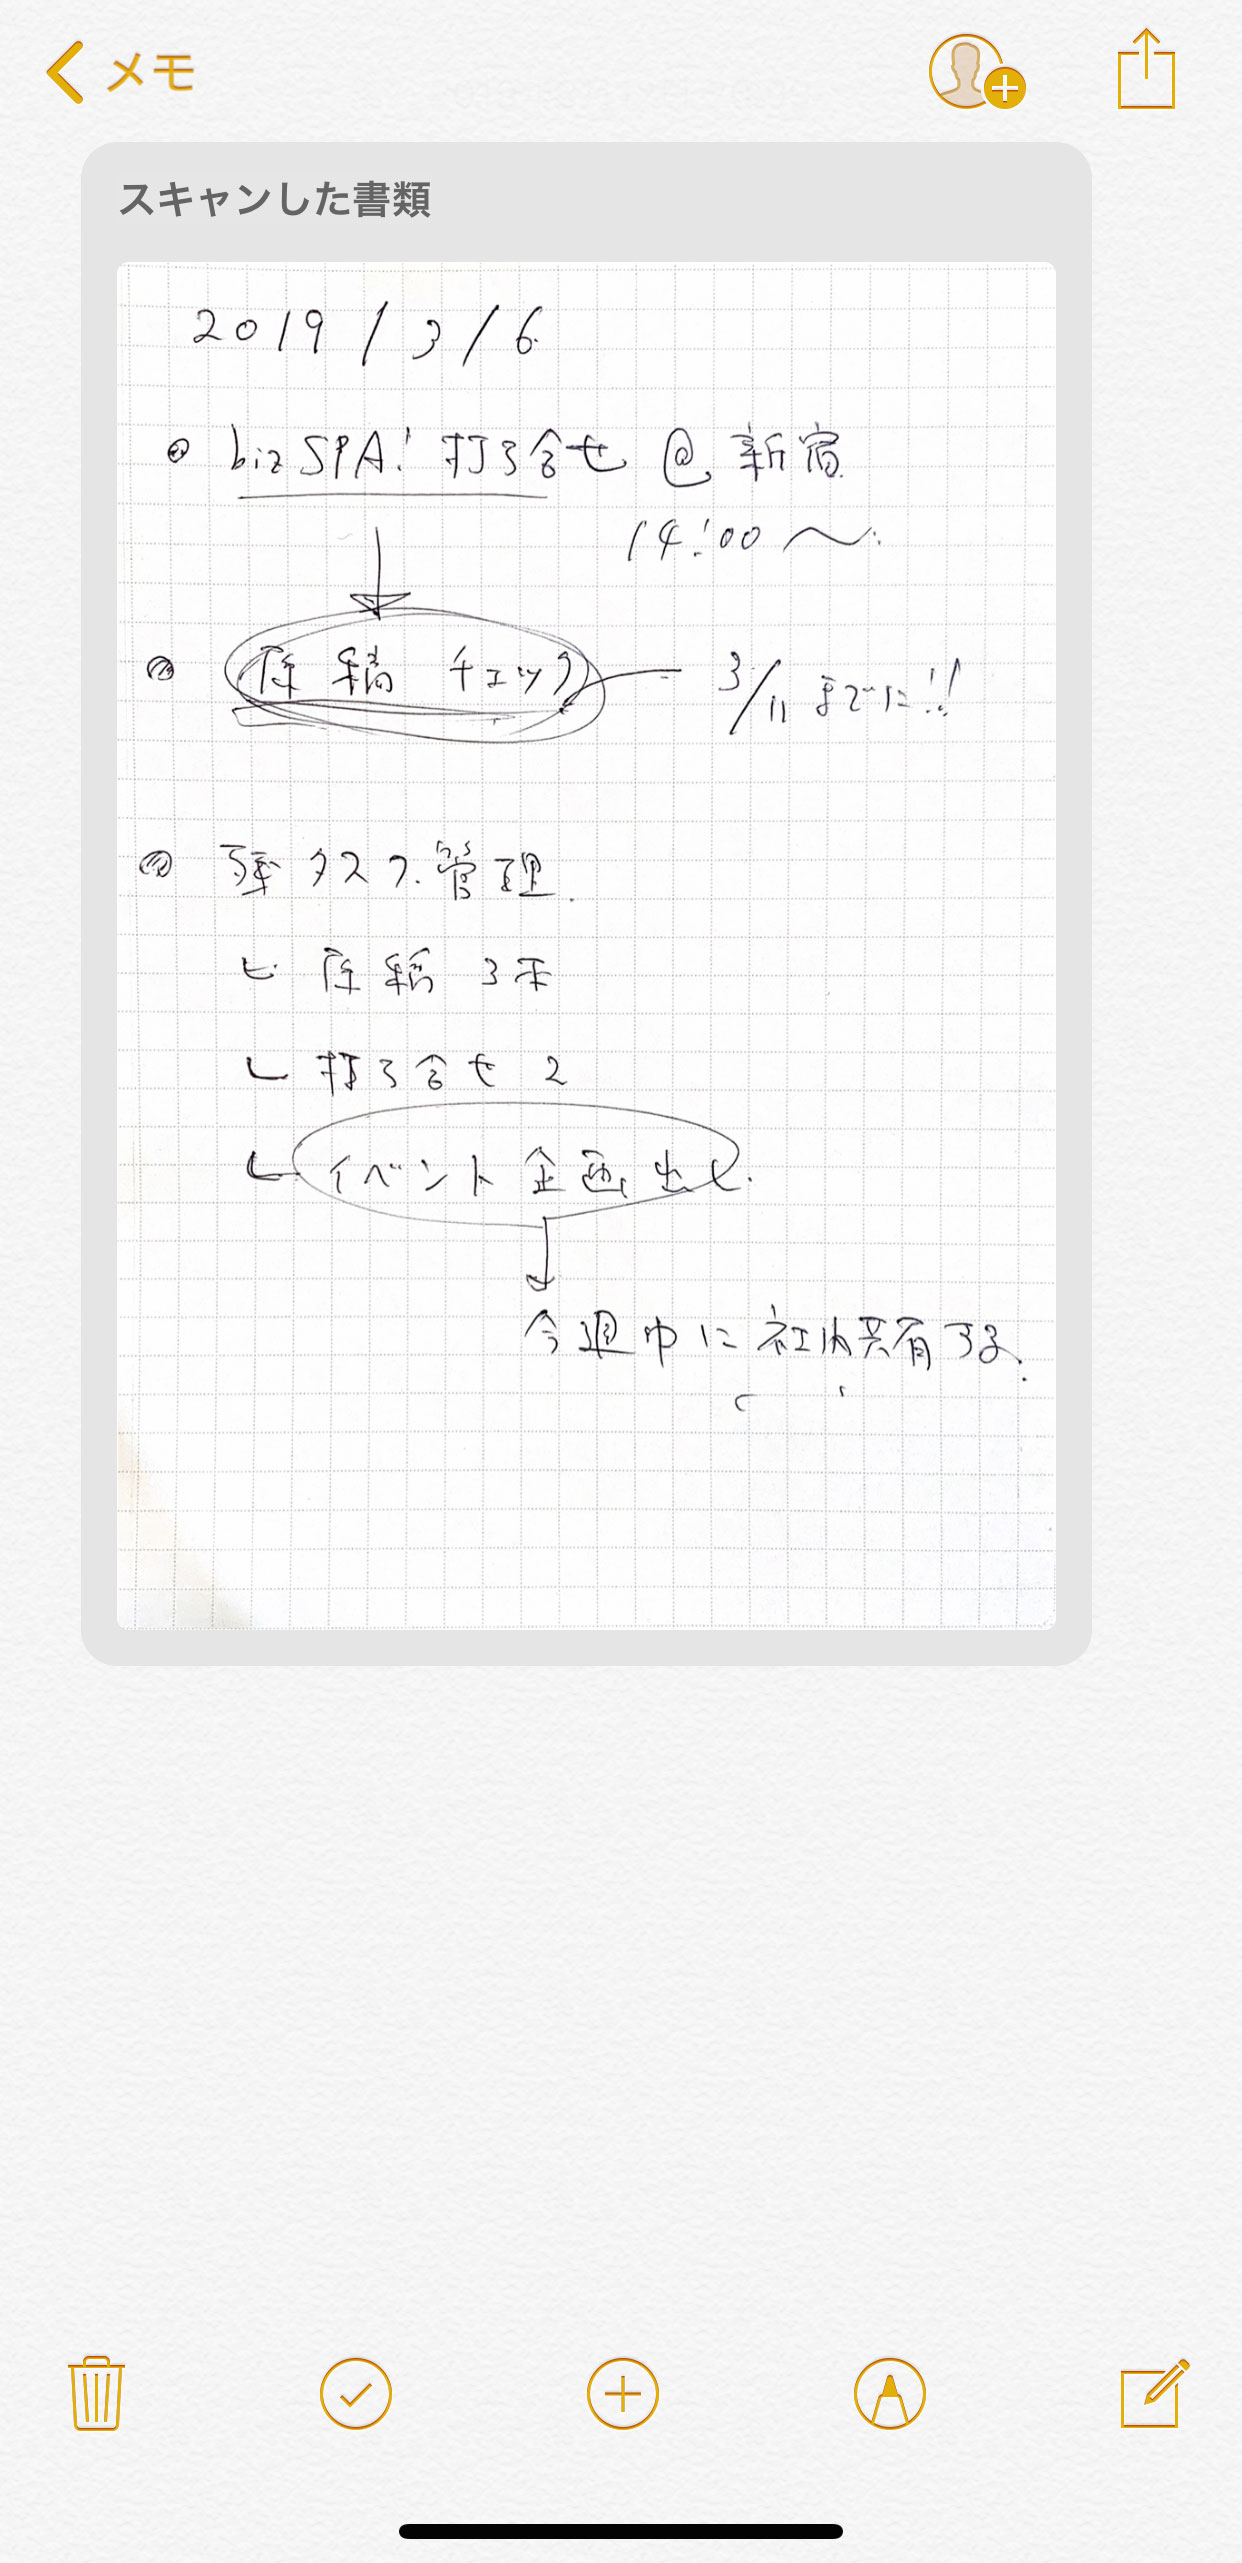 メモ
スキャンした書類
2019/3/6
bizSPA!打ち合せ @ 新宿
14:00〜
原稿チェック 3/11までに!!
残タスク管理.
原稿 3本
打ち合せ 2
イベント企画出し.
今週中に社内共有する.